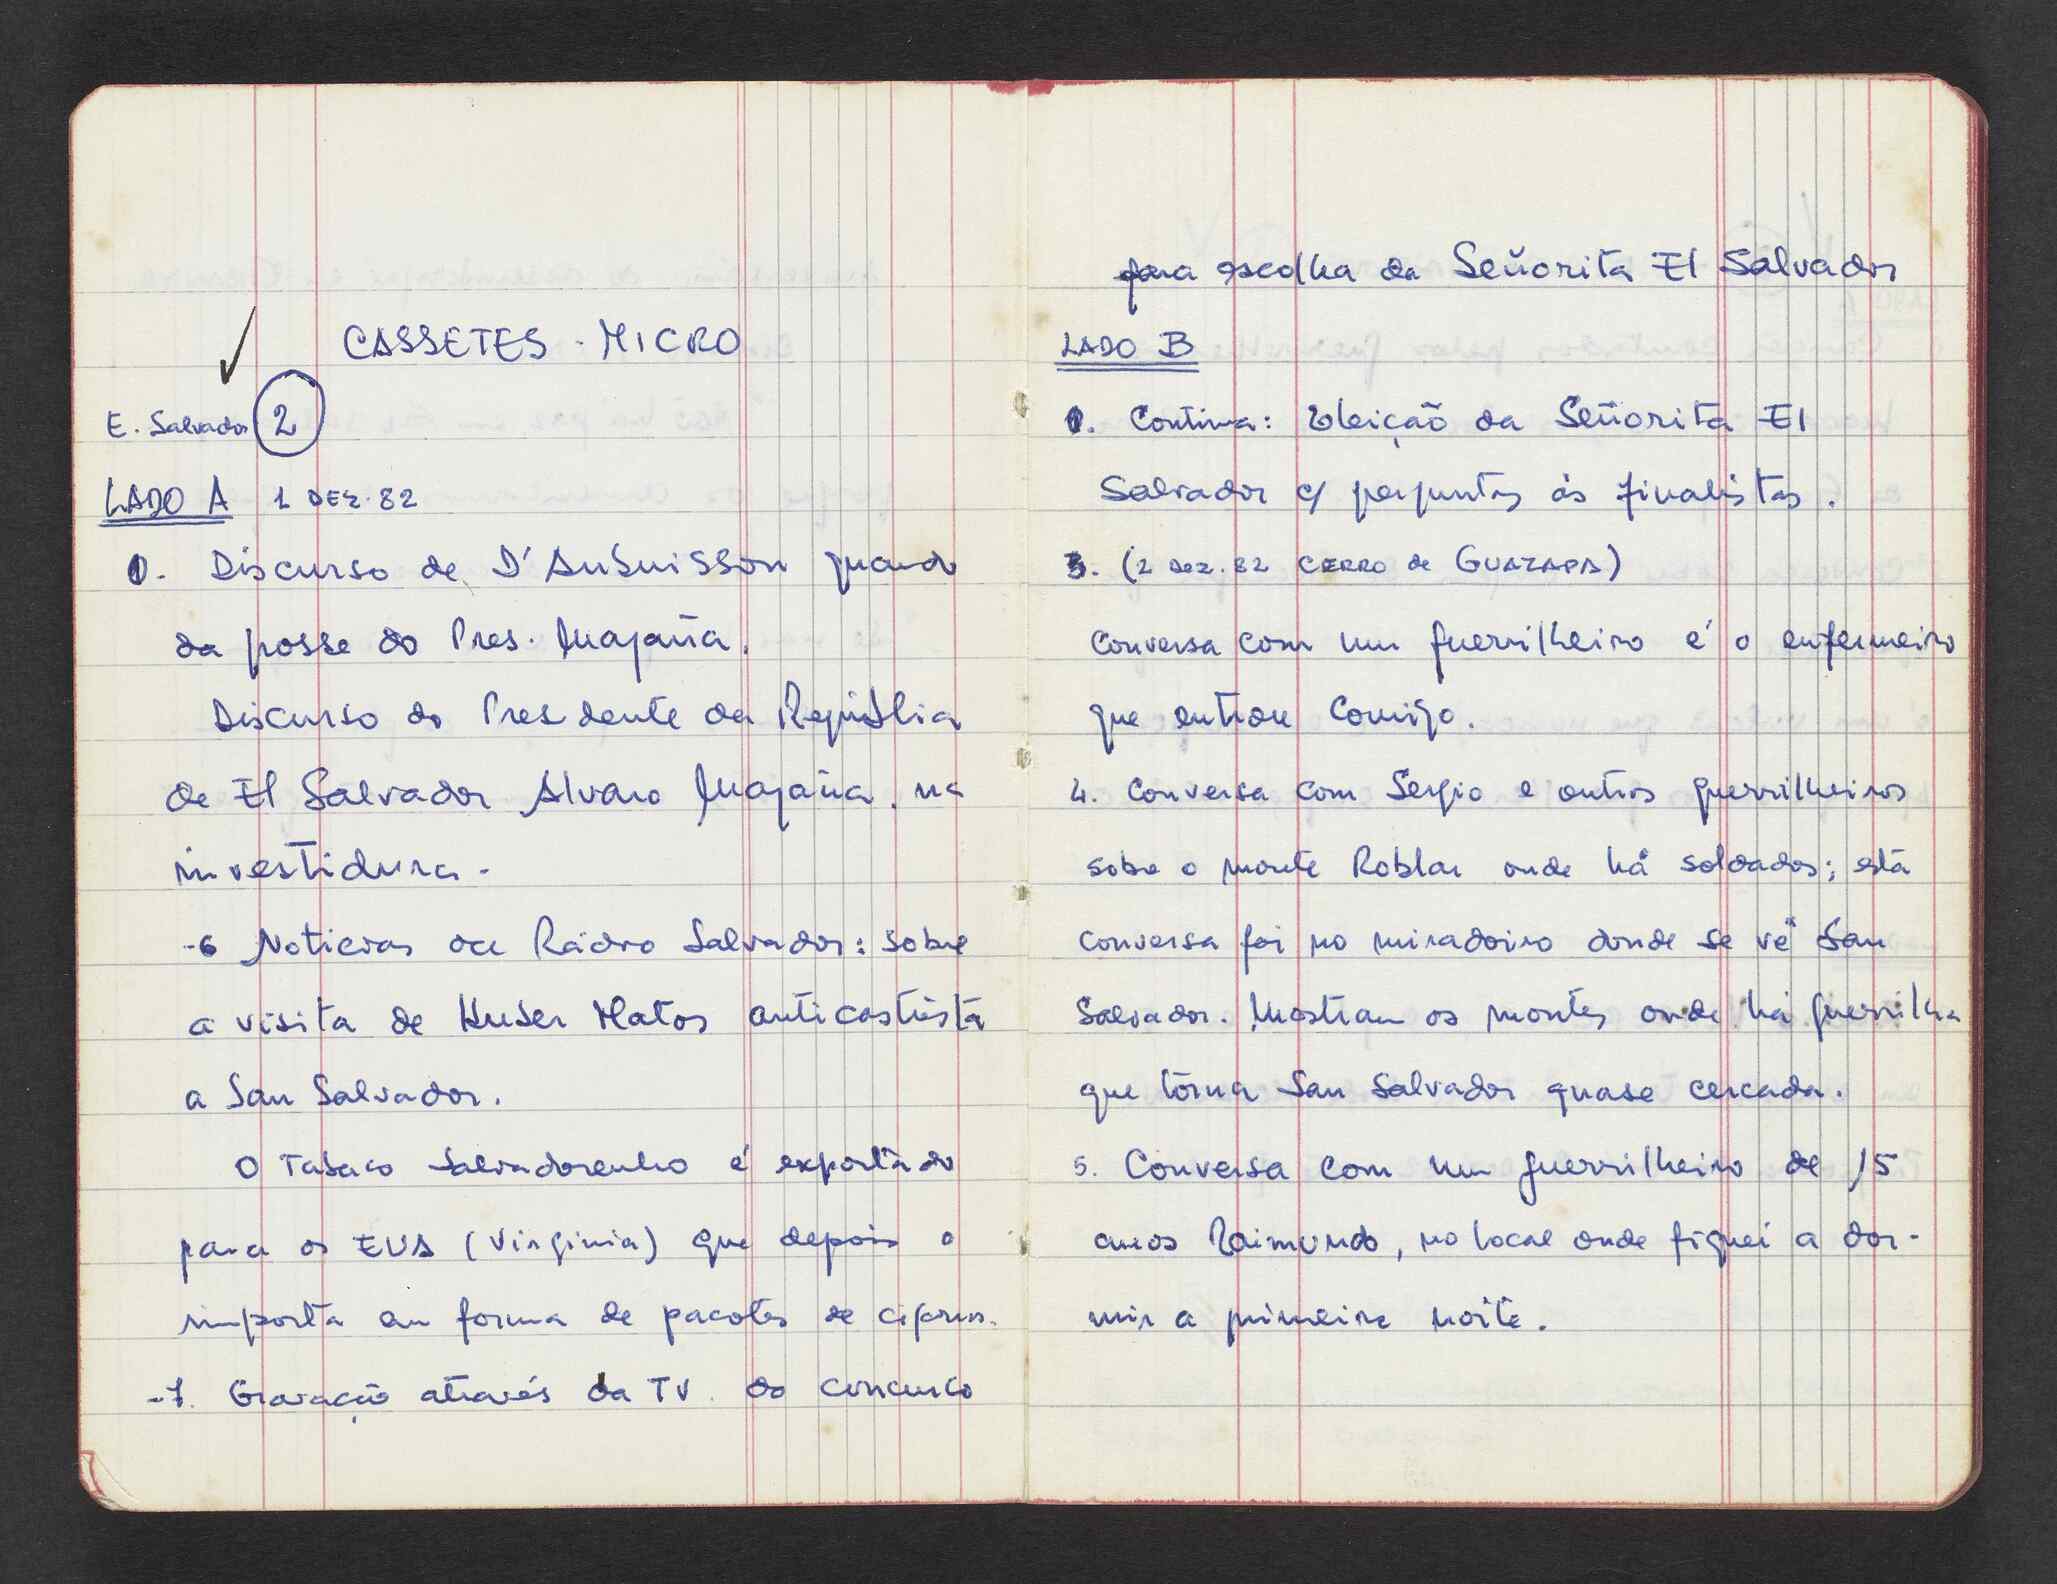 CASSETES - MICRO
E. Salvador 2
LADO A 1 DEZ. 82
0. Discurso de D'Aubuisson quando
da posse do Pres. Magaña.
Discurso do Presidente da República
de El Salvador Alvaro Magaña, na
investidura.
-6 Noticias da Rádio Salvador: sobre
a visita de Huber Matos anticastrista
a San Salvador.
O Tabaco Salvadorenho é exportado
para os EUA (Virginia) que depois o
importa em forma de pacotes de cigarros.
-7. Gravação através da TV. do concurso
para escolha da Señorita El Salvador
LADO B
0. Continua: Eleição da Señorita El
Salvador c/ perguntas às finalistas.
3. (2 DEZ. 82 CERRO de GUAZAPA)
Conversa com um guerrilheiro é o enfermeiro
que entrou comigo.
4. Conversa com Sergio e outros guerrilheiros
sobre o monte Roblar onde há soldados; está
conversa foi no miradoiro donde se vê San
Salvador. Mostram os montes onde há guerrilha
que torna San Salvador quase cercada.
5. Conversa com um guerrilheiro de 15
anos Raimundo, no local onde fiquei a dor-
mir a primeira noite.